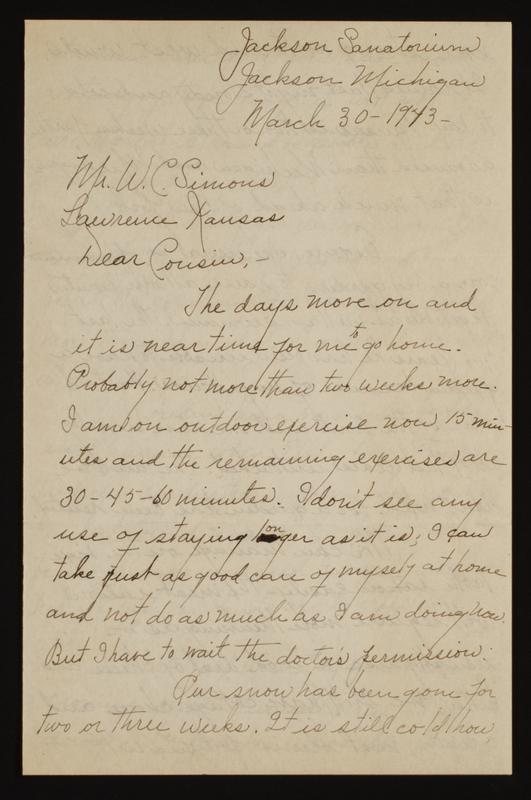 Jackson Sanatorium
Jackson Michigan
March 30-1943-
Mr. W.C. Simons
Lawrence Kansas
Dear Cousin,-
The days move on and
it is near time for me to go home.
Probably not more than two weeks more.
I am on outdoor exercise now 15 min-
utes and the remaining exercises are
30-45-60 minutes. I don't see any
use of staying longer as it is; I can
take just as good care of myself at home
and not do as much as I am doing now.
But I have to wait the doctor's permission.
Our snow has been gone for
two or three weeks. It is still cold how